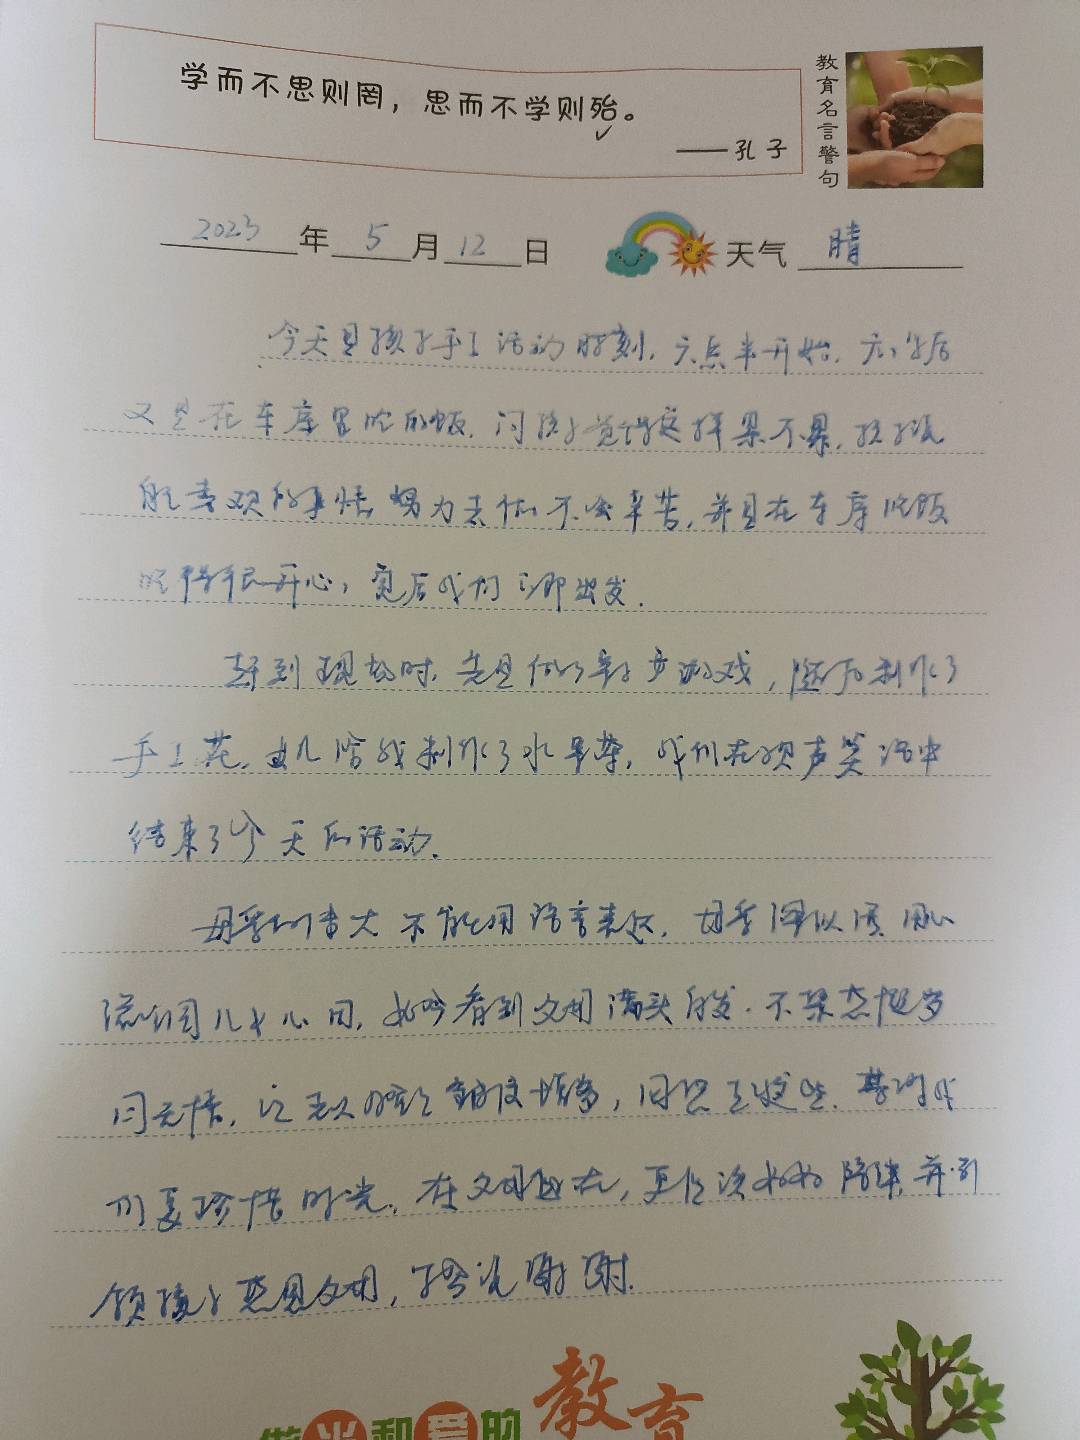 学而不思则罔，思而不学则殆。
——孔子
教育名言警句
2023年5月12日 天气 晴
今天是孩子手工活动时刻，六点半开始，放学后
又是在车库里吃的饭，问孩子觉得这样累不累，孩子说
能喜欢的事情努力去做不会辛苦，并且在车库吃饭
吃得很开心，完后我们立即出发.
来到现场时，先是做了亲子游戏，随后制作了
手工花，女儿给我制作了水果茶，我们在欢声笑语中
结束了今天的活动.
母爱的伟大不能用语言来表，母爱
儿女心田，如今看到父母满头白发，不禁感慨岁
月无情，
要珍惜时光，在父母健在，更应该好好陪伴，并引
领孩子感恩父母，学会说谢谢.
做光和爱的教育